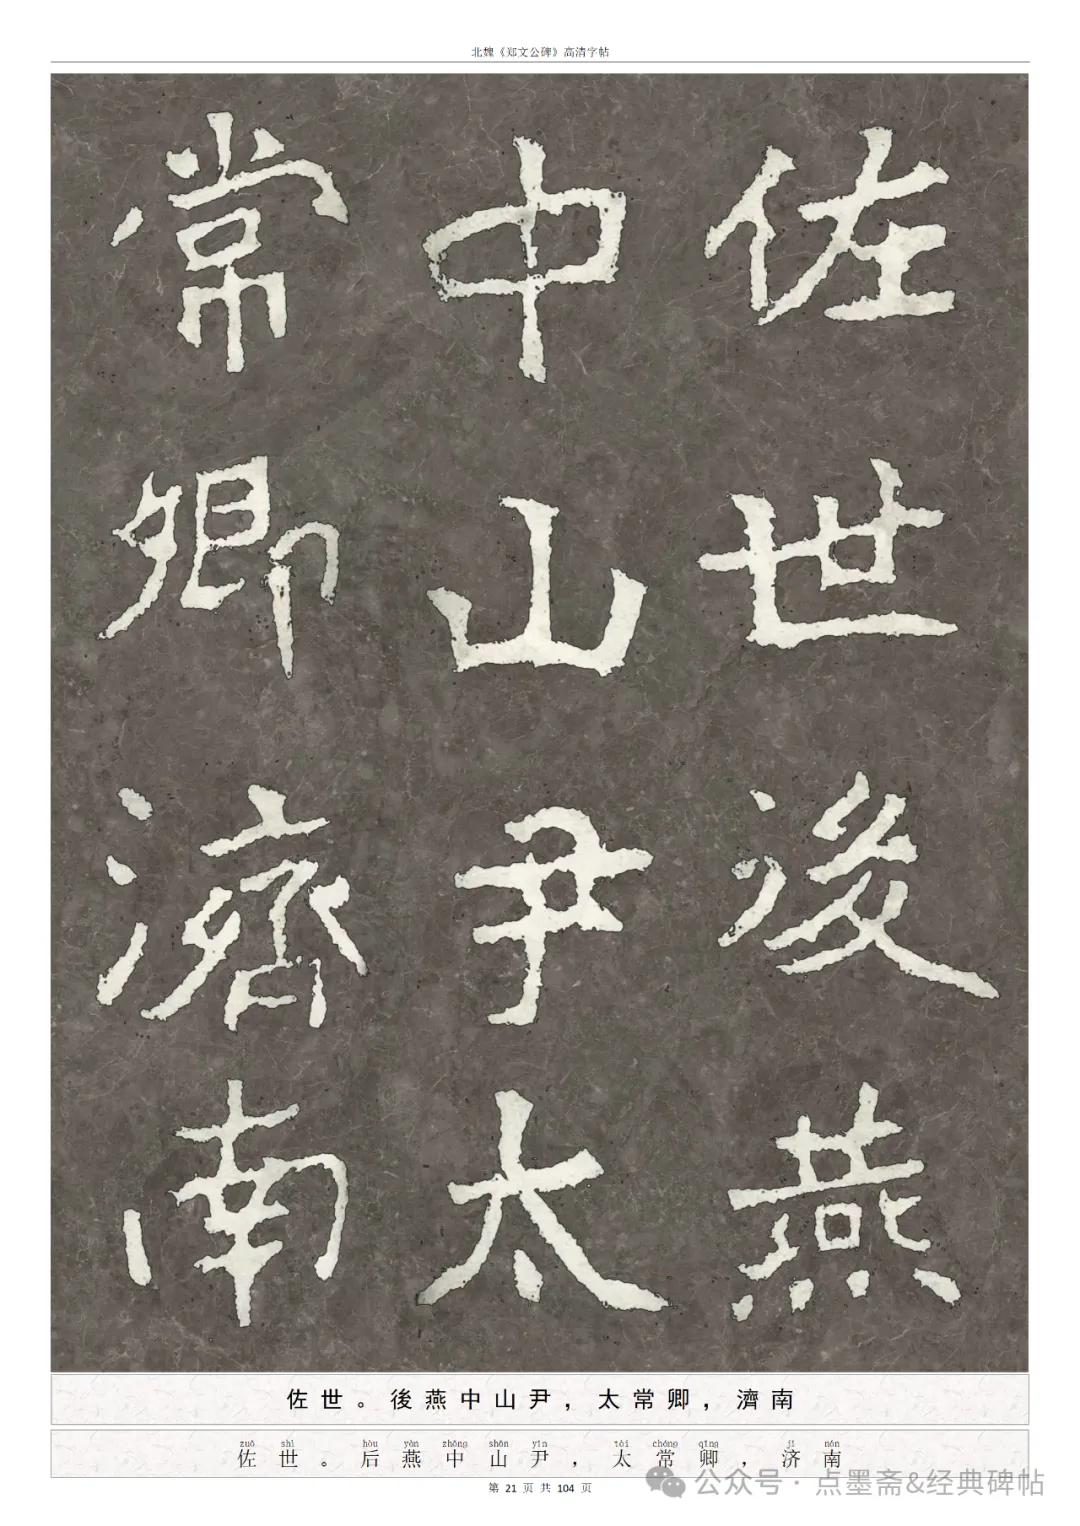 北魏《郑文公碑》高清字帖
佐世後燕
中山尹太
常卿濟南
佐世。後燕中山尹，太常卿，濟南
zuǒ shì hòu yàn zhōng shān yǐn tài cháng qīng jǐ nán
佐世。后燕中山尹，太常卿，济南
第 21 页 共 104 页
公众号 · 点墨斋&经典碑帖